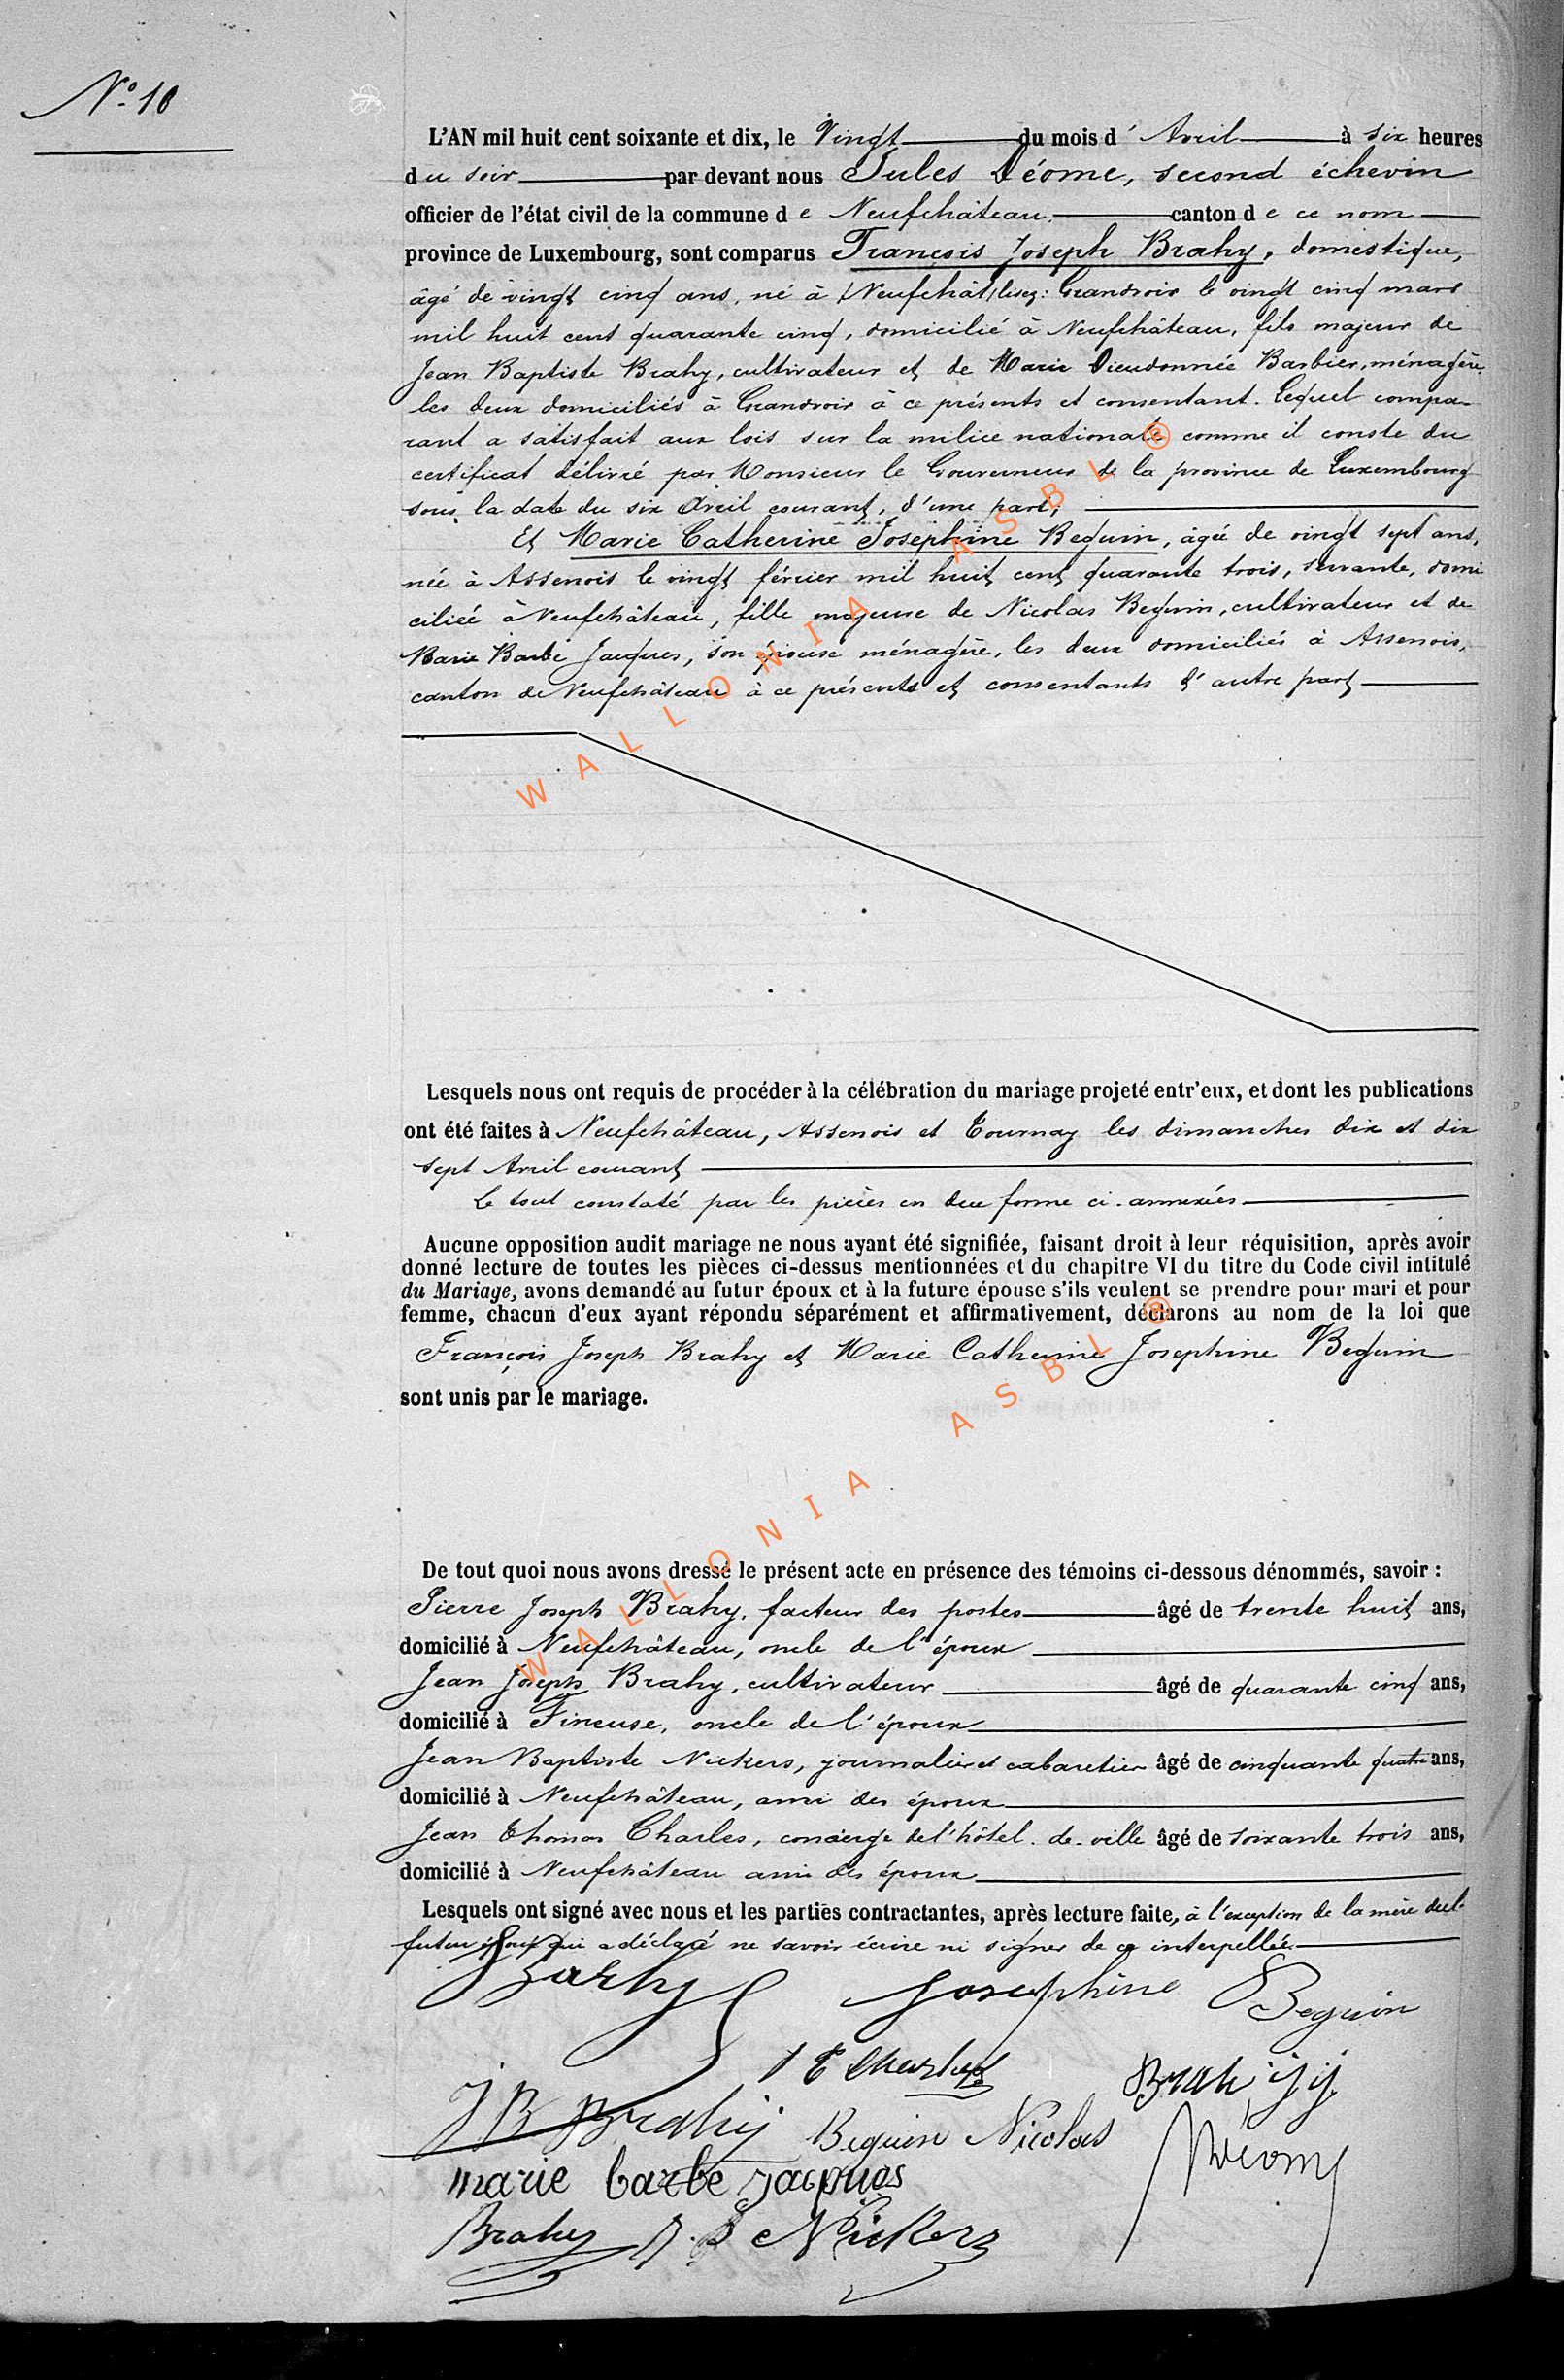 N° 10
L'AN mil huit cent soixante et dix, le Vingt du mois d'Avril à six heures
du soir par devant nous Jules Déome, second échevin
officier de l'état civil de la commune de Neufchâteau canton de ce nom
province de Luxembourg, sont comparus François Joseph Brahy, domestique,
âgé de vingt cinq ans, né à (Neufchât) lisez: Grandvoir le vingt cinq mars
mil huit cent quarante cinq, domicilié à Neufchâteau, fils majeur de
Jean Baptiste Brahy, cultivateur et de Marie Dieudonnée Barbier, ménagère
les deux domiciliés à Grandvoir à ce présents et consentant. Lequel compa-
rant a satisfait aux lois sur la milice nationale comme il conste du
certificat délivré par Monsieur le Gouverneur de la province de Luxembourg
sous la date du six Avril courant, d'une part,
Et Marie Catherine Josephine Bequin, âgée de vingt sept ans,
née à Assenois le vingt février mil huit cent quarante trois, servante, domi
ciliée à Neufchâteau, fille majeure de Nicolas Bequin, cultivateur et de
Marie Barbe Jacques, son épouse ménagère, les deux domiciliés à Assenois,
canton de Neufchâteau à ce présents et consentants d'autre part
Lesquels nous ont requis de procéder à la célébration du mariage projeté entr'eux, et dont les publications
ont été faites à Neufchâteau, Assenois et Tournay les dimanches dix et dix
sept Avril courant
Le tout constaté par les pièces en due forme ci-annexées
Aucune opposition audit mariage ne nous ayant été signifiée, faisant droit à leur réquisition, après avoir
donné lecture de toutes les pièces ci-dessus mentionnées et du chapitre VI du titre du Code civil intitulé
du Mariage, avons demandé au futur époux et à la future épouse s'ils veulent se prendre pour mari et pour
femme, chacun d'eux ayant répondu séparément et affirmativement, déclarons au nom de la loi que
François Joseph Brahy et Marie Catherine Josephine Bequin
sont unis par le mariage.
De tout quoi nous avons dressé le présent acte en présence des témoins ci-dessous dénommés, savoir :
Pierre Joseph Brahy, facteur des postes âgé de trente huit ans,
domicilié à Neufchâteau, oncle de l'époux
Jean Joseph Brahy, cultivateur âgé de quarante cinq ans,
domicilié à Fineuse, oncle de l'époux
Jean Baptiste Nickers, journalier et cabaretier âgé de cinquante quatre ans,
domicilié à Neufchâteau, ami des époux
Jean Thomas Charles, concierge de l'hôtel-de-ville âgé de soixante trois ans,
domicilié à Neufchâteau ami des époux
Lesquels ont signé avec nous et les parties contractantes, après lecture faite, à l'exception de la mère du
futur époux qui a déclaré ne savoir écrire ni signer de ce interpellée
Brahy Josephine Beguin
J T Charles Brahy J J
J B Brahy Beguin Nicolas
marie barbe jacques Déome
Brahy J. B Nickers
WALLONIA ASBL ®
WALLONIA ASBL ®